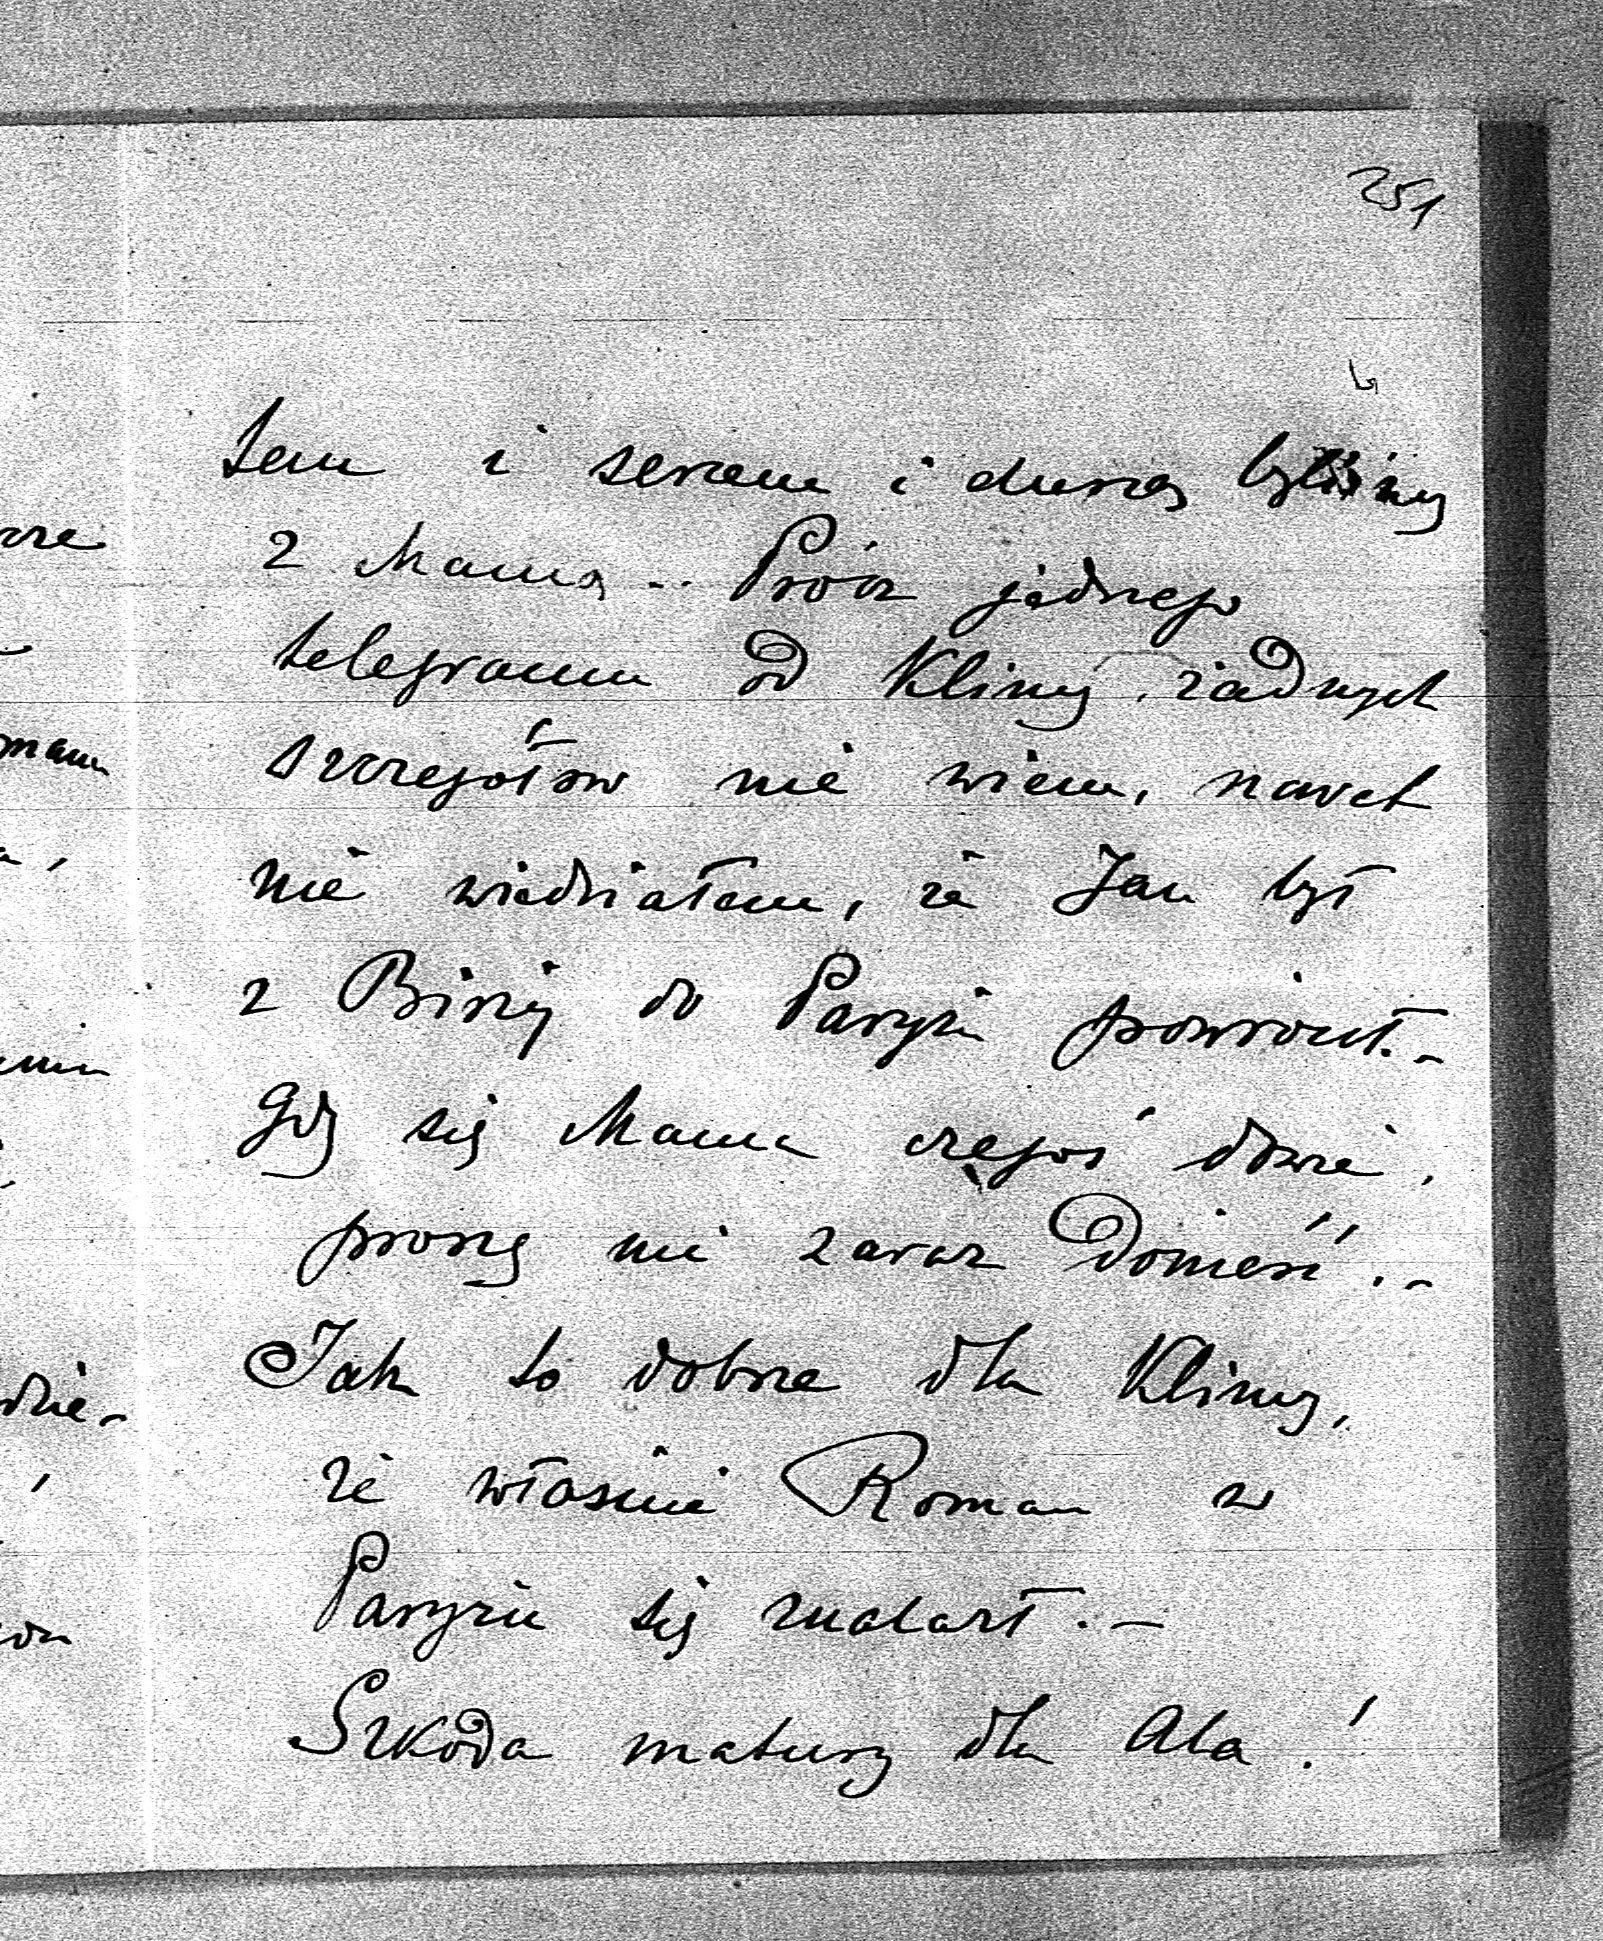 251
tem i sercem i duszą byliśmy
z Mamą .. Prócz jednego
telegramu od Klimy, żadnych
szczegółów nie wiem, nawet
nie wiedziałem, że Jan był
z Biszą do Paryża powrócił. –
Gdy się Mama czegoś dowie,
proszę mi zaraz donieść. –
Jak to dobrze dla Klimy,
że właśnie Roman w
Paryżu się znalazł. –
Szkoda matury dla Ala !